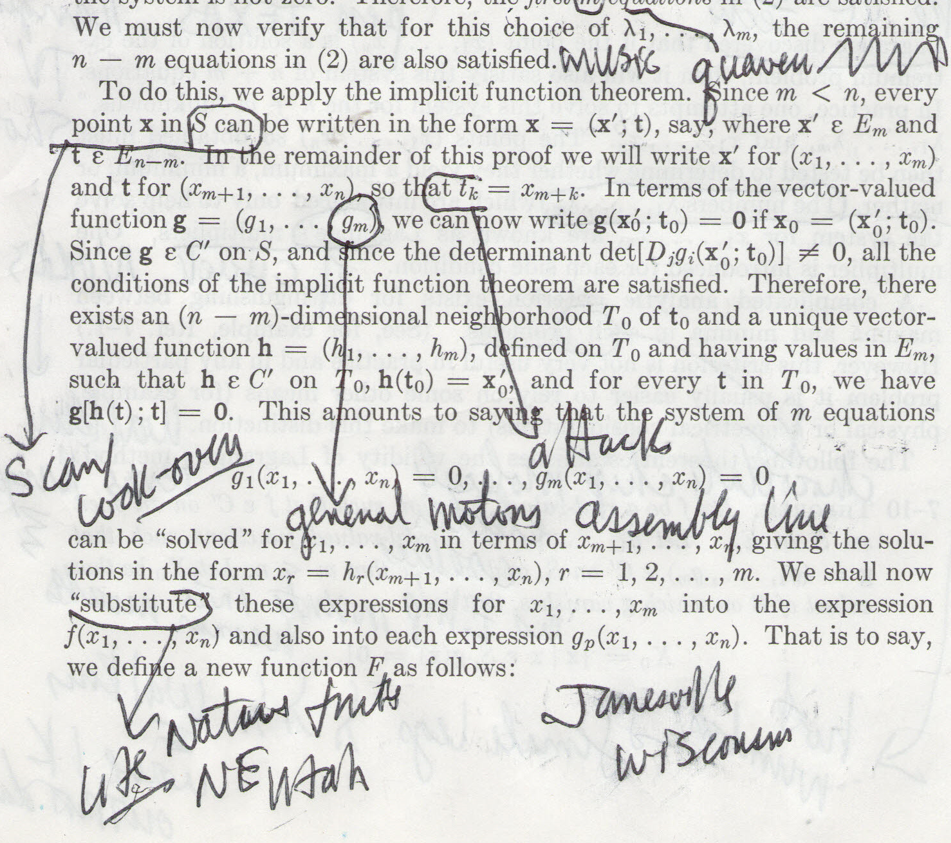 the system is not zero. Therefore, the first m equations in (2) are satisfied.
We must now verify that for this choice of λ₁, . . . , λₘ, the remaining
n − m equations in (2) are also satisfied. music quaver
To do this, we apply the implicit function theorem. Since m < n, every
point x in S can be written in the form x = (x′; t), say, where x′ ε Eₘ and
t ε Eₙ₋ₘ. In the remainder of this proof we will write x′ for (x₁, . . . , xₘ)
and t for (xₘ₊₁, . . . , xₙ), so that tₖ = xₘ₊ₖ. In terms of the vector-valued
function g = (g₁, . . . , gₘ), we can now write g(x₀′; t₀) = 0 if x₀ = (x₀′; t₀).
Since g ε C′ on S, and since the determinant det[Dⱼgᵢ(x₀′; t₀)] ≠ 0, all the
conditions of the implicit function theorem are satisfied. Therefore, there
exists an (n − m)-dimensional neighborhood T₀ of t₀ and a unique vector-
valued function h = (h₁, . . . , hₘ), defined on T₀ and having values in Eₘ,
such that h ε C′ on T₀, h(t₀) = x₀′, and for every t in T₀, we have
g[h(t); t] = 0. This amounts to saying that the system of m equations
Scan attack
look over
g₁(x₁, . . . , xₙ) = 0, . . . , gₘ(x₁, . . . , xₙ) = 0
general motors assembly line
can be “solved” for x₁, . . . , xₘ in terms of xₘ₊₁, . . . , xₙ, giving the solu-
tions in the form xᵣ = hᵣ(xₘ₊₁, . . . , xₙ), r = 1, 2, . . . , m. We shall now
“substitute” these expressions for x₁, . . . , xₘ into the expression
f(x₁, . . . , xₙ) and also into each expression gₚ(x₁, . . . , xₙ). That is to say,
we define a new function F as follows:
Janesville
Wisconsin